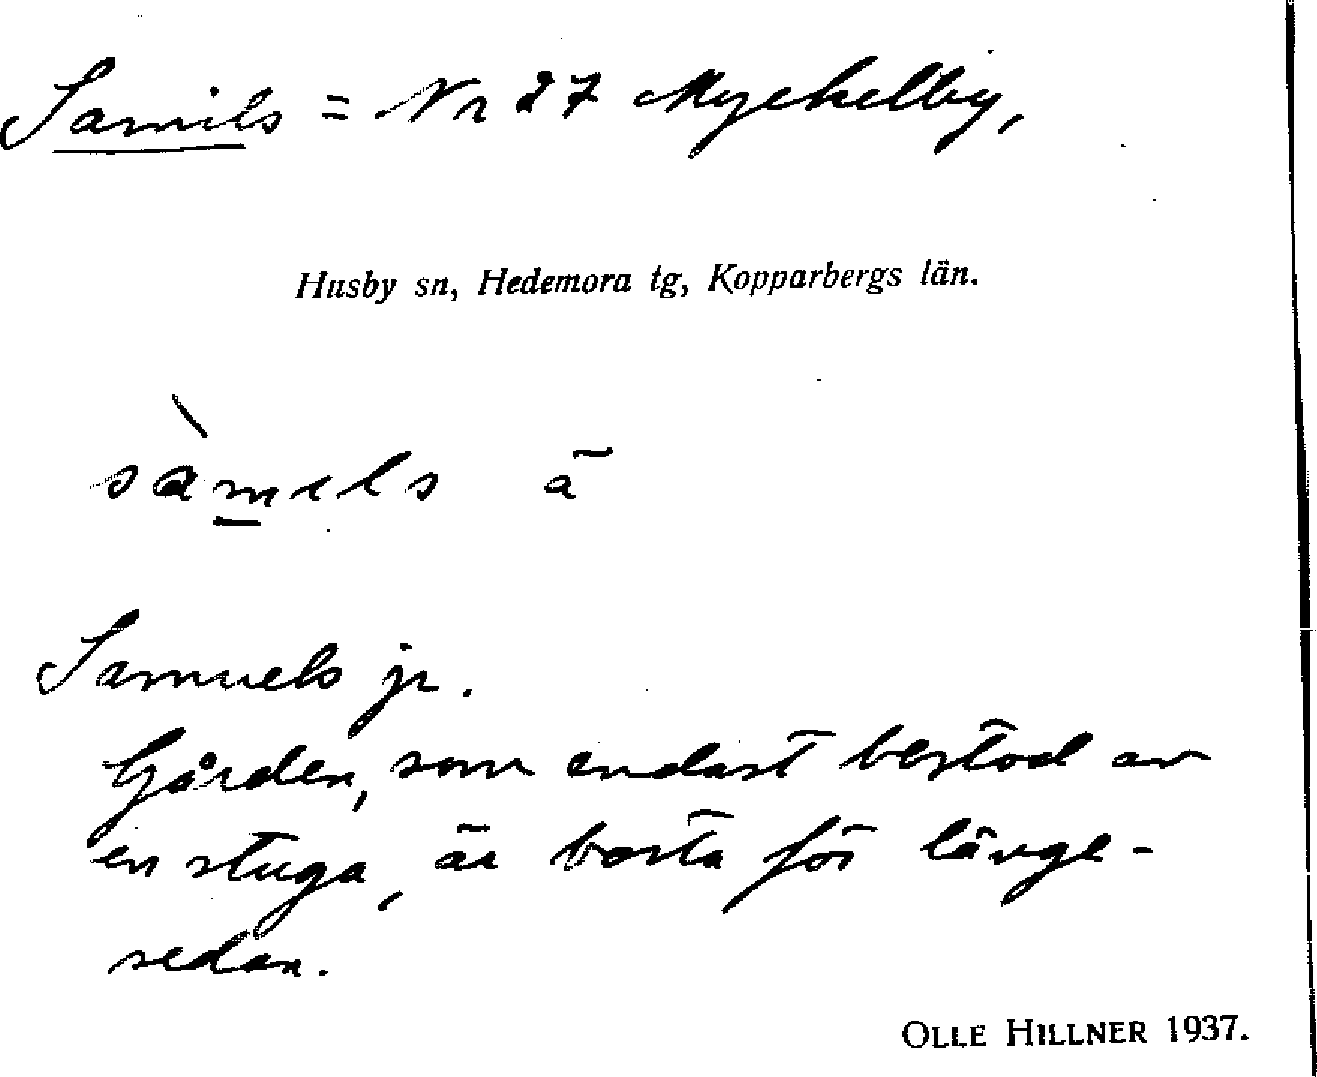 Samils = Nr 27 Myckelby,
Husby sn, Hedemora tg, Kopparbergs län.
sàmels ā
Samuels jr.
Gården, som endast bestod av
en stuga, är borta för länge-
sedan.
OLLE HILLNER 1937.